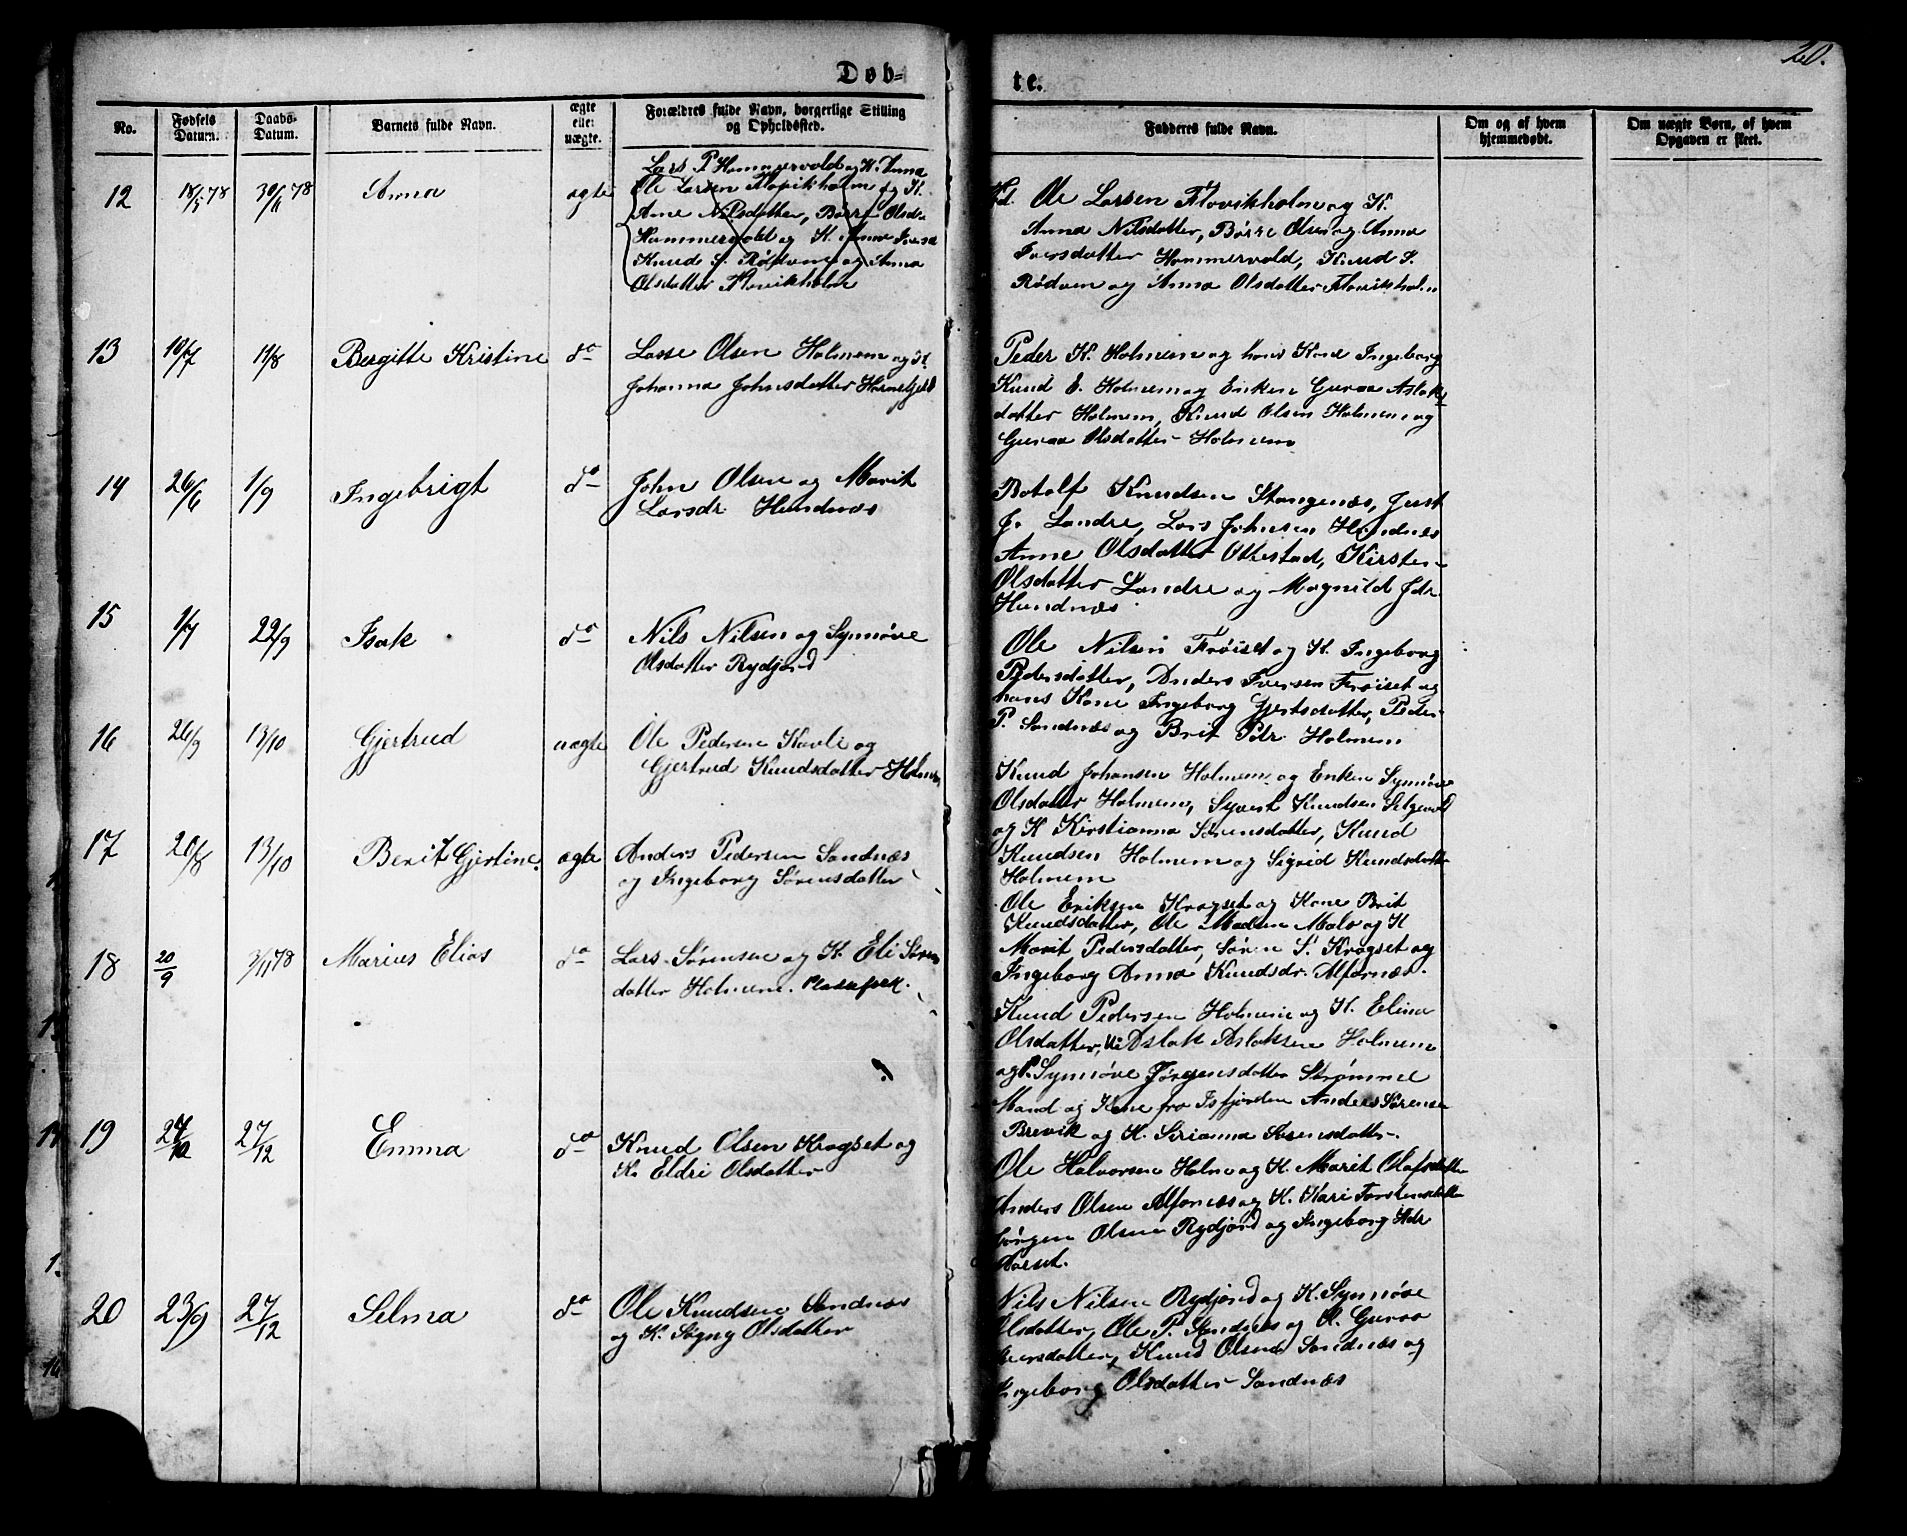 20.
Døb-
te.
No.
Fødsels Datum.
Daabs-Datum.
Barnets fulde Navn.
ægte eller uægte.
Forældres fulde Navn, borgerlige Stilling og Opholdssted.
Fadderes fulde Navn.
Om og af hvem hjemmedøbt.
Om uægte Børn, af hvem Opgaven er skeet.
12
18/5 78
30/6 78
Anna
ægte
Lars P Hammervold og K. Anna
Ole Larsen Flovikholm og K.
Anne Nilsdatter, Børre Olsen
Hammervold og K. Anna Iversd
Knud S. Rødven og Anna
Olsdatter Flovikholm
Ole Larsen Flovikholm og K.
Anna Nilsdatter, Børre Olsen og Anna
Iversdatter Hammervold, Knud S.
Rødven og Anna Olsdatter Flovikholm
13
10/7
11/8
Bergitte Kristine
do
Lasse Olsen Holmem og K.
Johanna Johnsdatter
Peder K. Holmem og hans Kone Ingeborg
Knud E. Holmem og Enken Guraa Aslaks
datter Holmem, Knud Olsen Holmem og
Guraa Olsdatter Holmem
14
26/6
1/9
Ingebrigt
do
John Olsen og Marit
Larsdr Hundnæs
Botolf Knudsen Stangenæs, Just
J. Landre, Lars Johnsen Hundnes
Anne Olsdatter Ottestad, Kirsten
Olsdatter Landre og Magnild Jdr.
Hundnæs
15
1/7
22/9
Isak
do
Nils Nilsen og Synnøve
Olsdatter Rydjord
Ole Nilsen Frøiset og K. Ingeborg
Pedersdatter, Anders Iversen Frøiset og
hans Kone Ingeborg Gjertsdatter, Peder
P. Sandnæs og Brit Pdr. Holmem
16
26/9
13/10
Gjertrud
uægte
Ole Pedersen Kavli og
Gjertrud Knudsdatter Holmem
Knud Johansen Holmem og Enken Synnøve
Olsdatter Holmem, Syvert Knudsen Selgevold
og K Kirstianna Sørensdatter, Knud
Knudsen Holmem og Sigrid Knudsdatter
Holmem
17
20/8
13/10
Berit Gjertine
ægte
Anders Pedersen Sandnæs
og Ingeborg Sørensdatter
Ole Eriksen Kragset og Kone Brit
Knudsdatter, Ole Madsen Malo og K
Marit Pedersdatter, Søren S. Kragset og
Ingeborg Anna Knudsdr. Alfarnæs.
18
20/9
3/11 78
Marius Elias
do
Lars Sørensen og K. Eli Søren
datter Holmem. Pladsfolk.
Knud Pedersen Holmem og K. Elina
Olsdatter, Aslak Aslaksen Holmem
og P. Synnøve Jørgensdatter Strømme
Mand og Kone fra Isfjorden Anders Sørensen
Brevik og K. Serianna Sørensdatter.
19
27/10
27/12
Emma
do
Knud Olsen Kragset og
K. Eldri Olsdatter
Ole Halvorsen Holm og K. Marit Olafsdatter
Anders Olsen Alfarnæs og K. Kari Torstensdatter
Jørgen Olsen Rydjord og Ingeborg
20
23/9
27/12
Selma
do
Ole Knudsen Sandnæs
og K. Søgny Olsdatter
Nils Nilsen Rydjord og K. Synnøve
Olsdatter, Ole P. Sandnæs og K. Guraa
Iversdatter, Knud Olsen Sandnæs og
Ingeborg Olsdatter Sandnæs